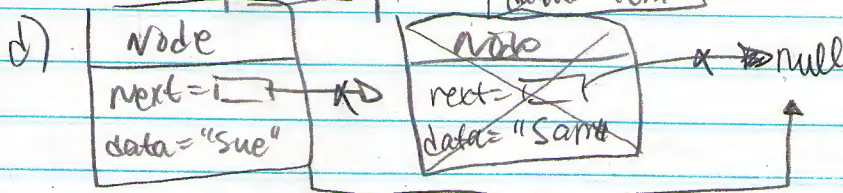 d)
Node
next=
data="Sue"
Node
next=
data="Sam"
null